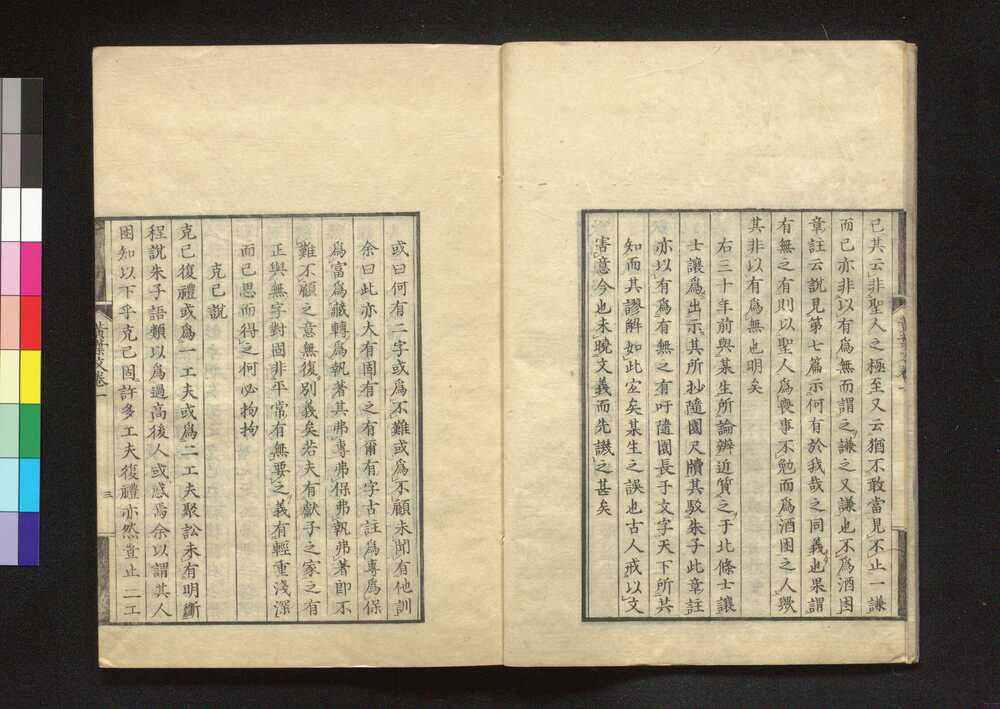 已其云非聖人之極至又云猶不敢當見不止一謙
而已亦非以有爲無而謂之謙之又謙也不爲酒困
章註云說見第七篇示何有於我哉之同義也果謂
有無之有則以聖人爲喪事不勉而爲酒困之人歟
其非以有爲無也明矣
右三十年前與某生所論辨近質之于北條士讓
士讓爲出示其所抄隨園尺牘其駁朱子此章註
亦以有爲有無之有吁隨園長于文字天下所共
知而其謬解如此宜矣某生之誤也古人戒以文
害意今也未曉文義而先譏之甚矣
或曰何有二字或爲不難或爲不顧未聞有他訓
余曰此亦大有固有之有爾有字古註爲專爲保
爲富爲藏轉爲執著其弗專弗保弗執弗著卽不
難不顧之意無復別義矣若夫有獻子之家之有
正與無字對固非平常有無要之義有輕重淺深
而已思而得之何必拘拘
克己說
克己復禮或爲一工夫或爲二工夫聚訟未有明斷
程說朱子語類以爲過高後人或惑焉余以謂其人
困知以下乎克己固許多工夫復禮亦然豈止二工
黃葉文卷一
三